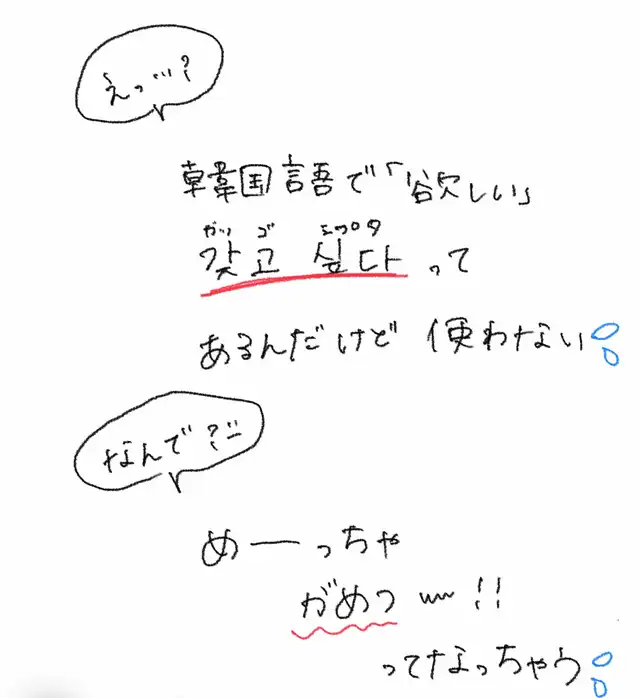 えっ…?
韓国語で「欲しい」
カッ ゴ シㇷ゚タ
갖고 싶다 って
あるんだけど 使わない
なんで?
めーっちゃ
がめつ 〰!!
ってなっちゃう